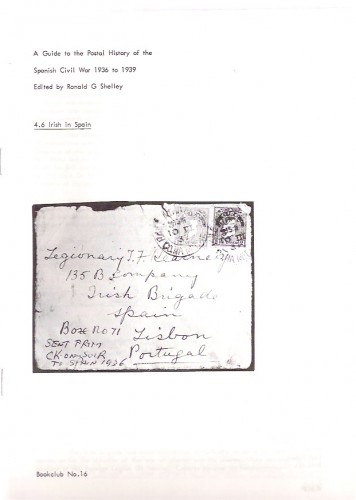 A Guide to the Postal History of the
Spanish Civil War 1936 to 1939
Edited by Ronald G Shelley
4.6 Irish in Spain
Legionary T. F. Kearney
135 B Company
Irish Brigade
Spain
Boxe No 71 Lisbon
Portugal
SENT FROM
TO SPAIN 1936
Bookclub No.16